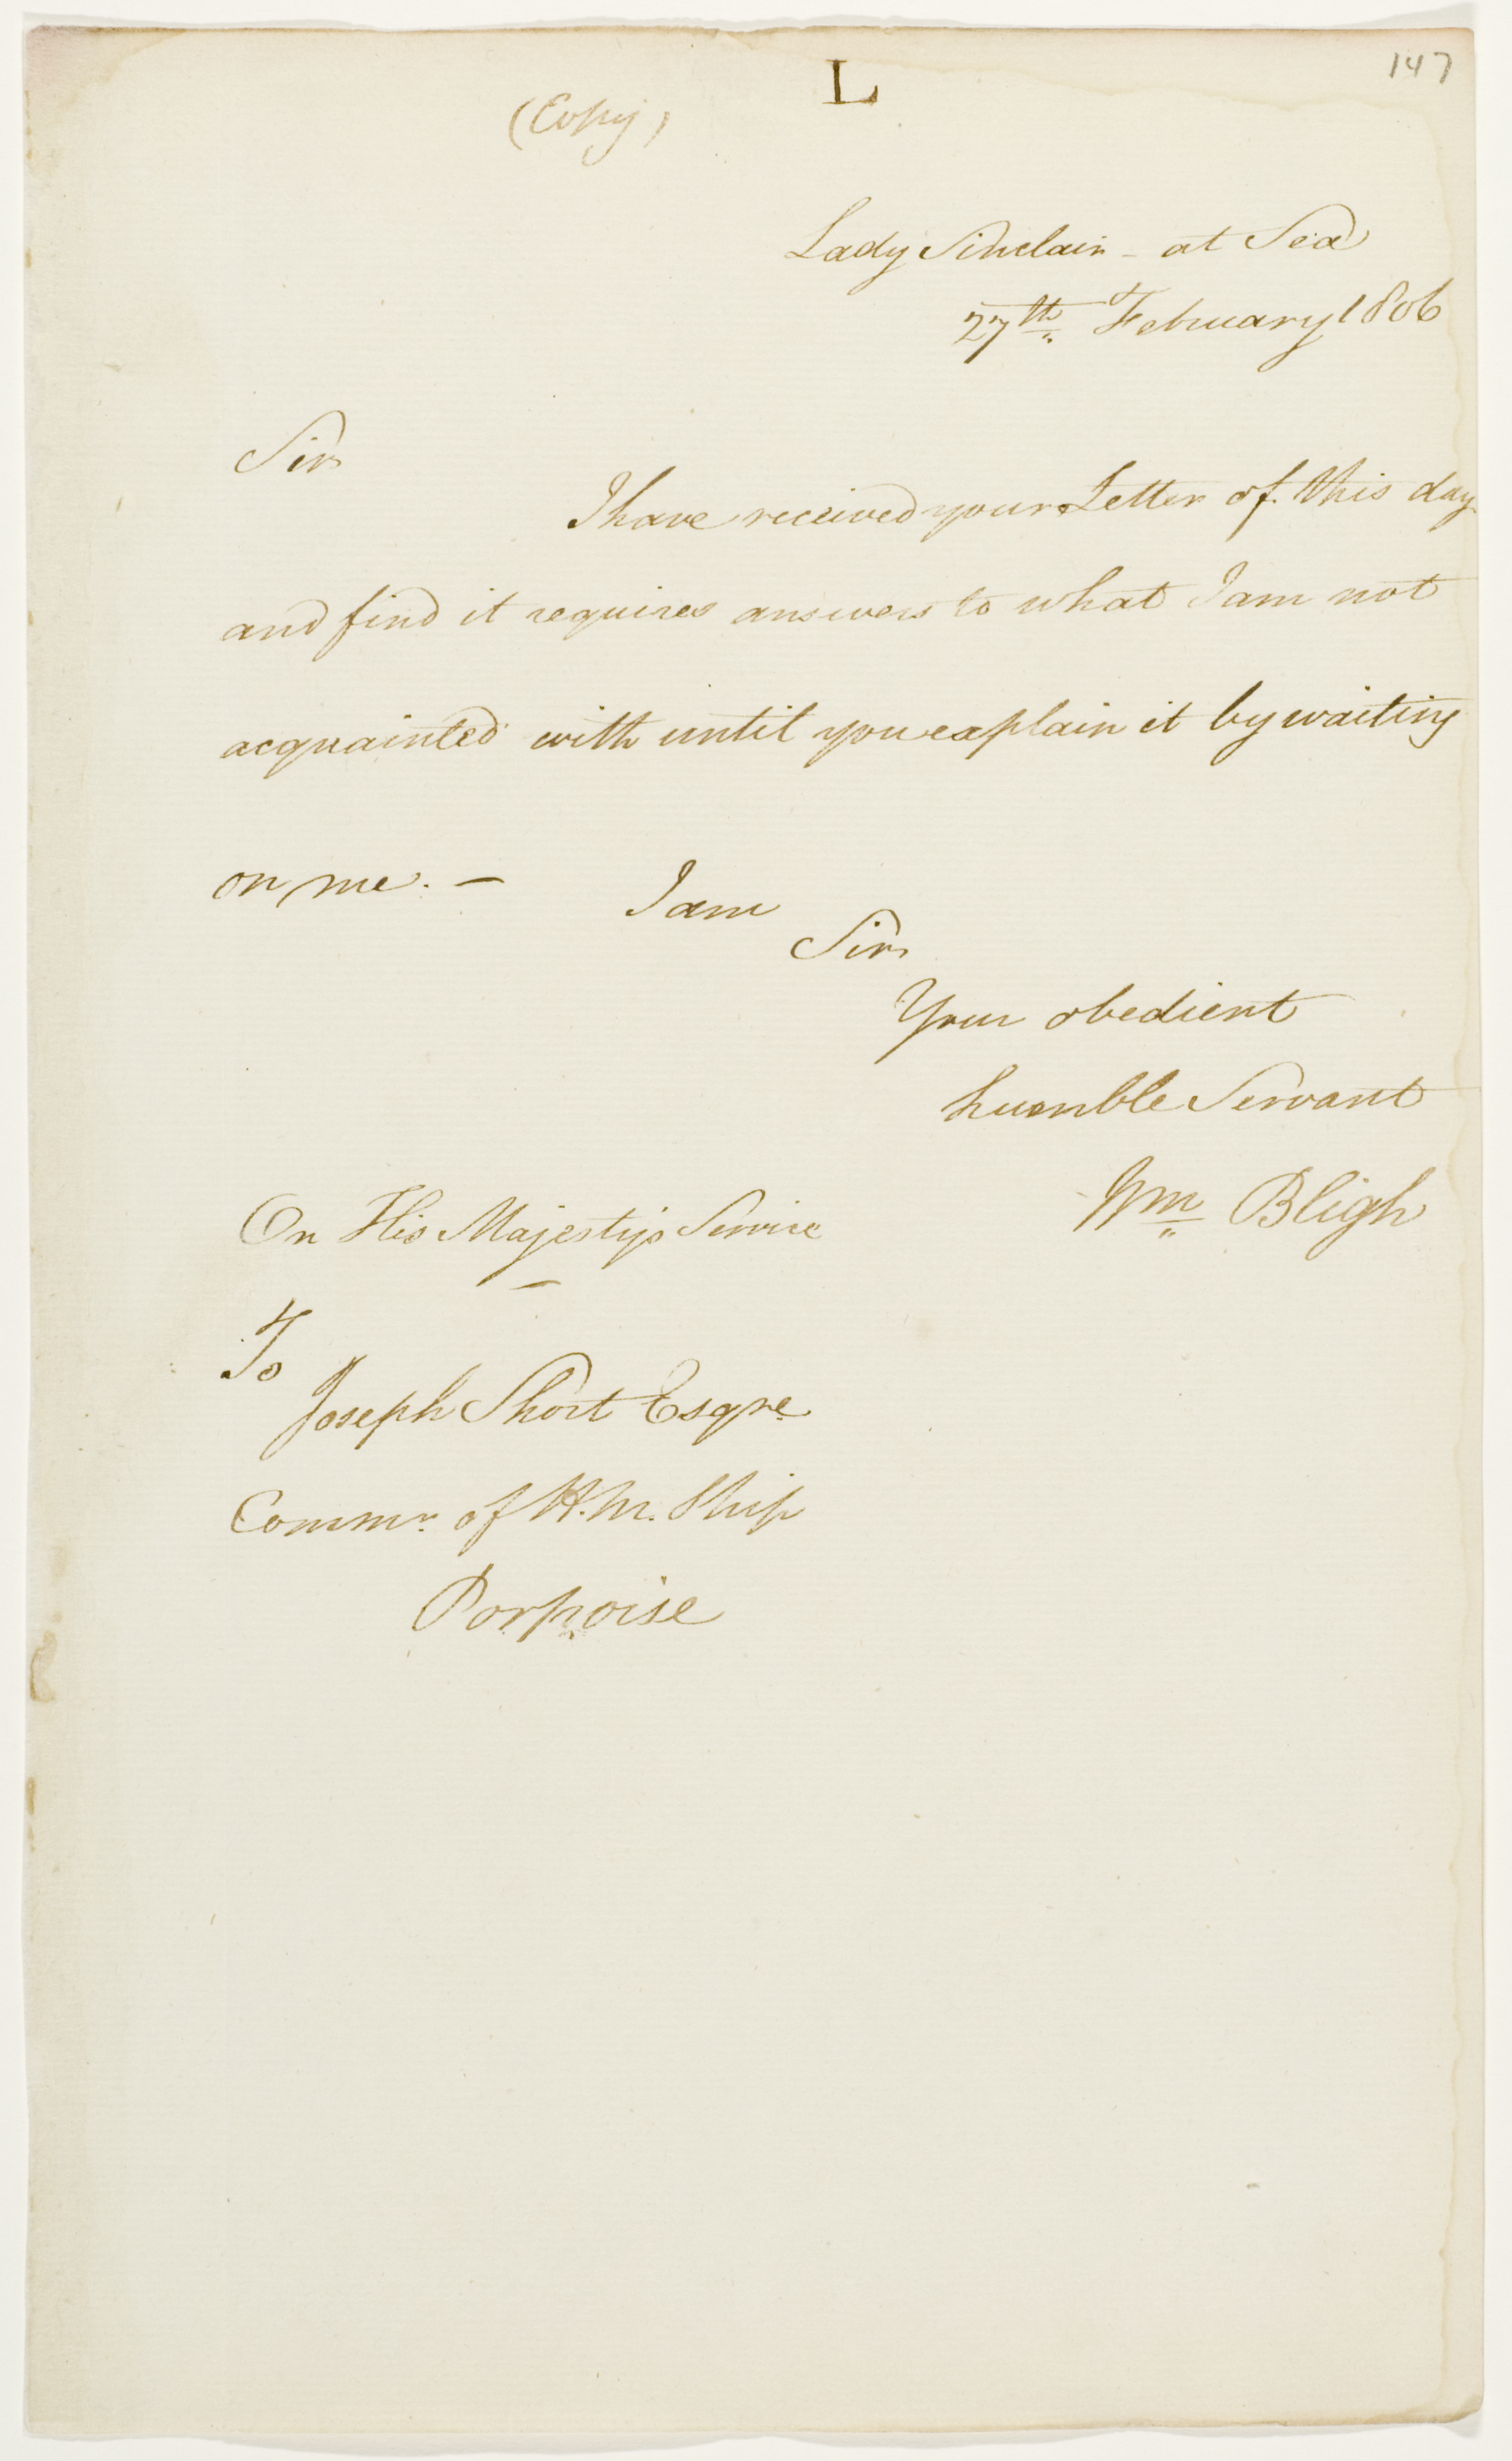 147
L
(Copy)
Lady Sinclair - at Sea
27th February 1806
Sir
I have received your Letter of this day
and find it requires answers to what I am not
acquainted with until you explain it by waiting
on me. —
I am
Sir
Your obedient
humble Servant
Wm Bligh
On His Majestys Service
To
Joseph Short Esqre
Commr. of H.M. Ship
Porpoise